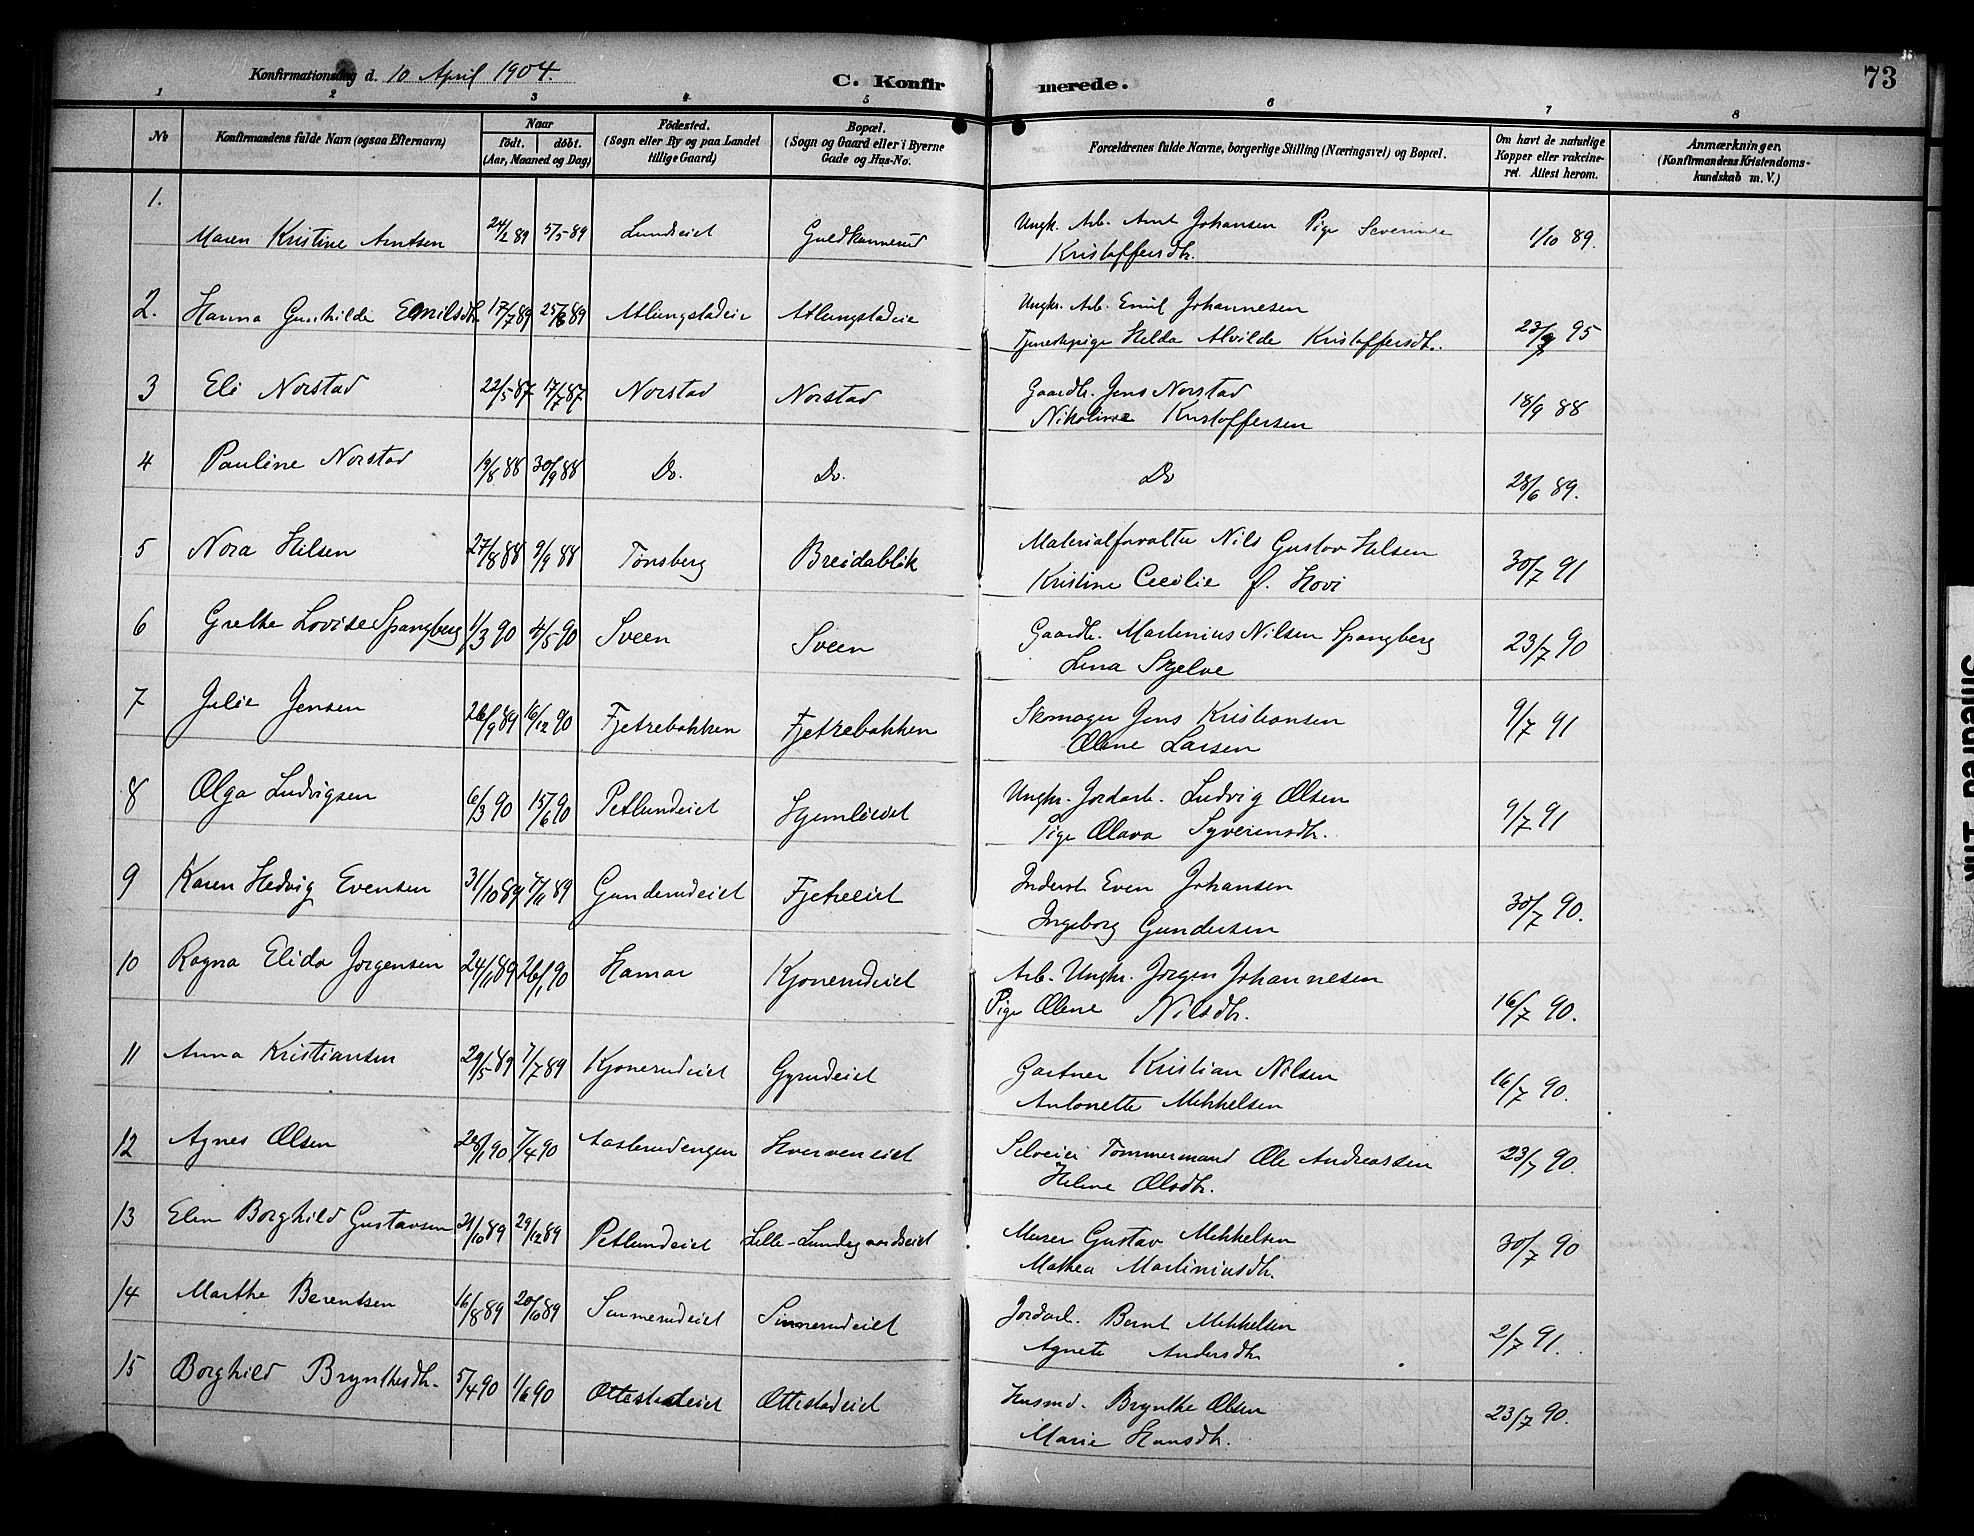 Konfirmationsdag d. 10 April 1904.
C. Konfirmerede.
73
1 2 3 4 5 6 7 8
No
Konfirmandens fulde Navn (ogsaa Efternavn)
Naar
født. døbt.
(Aar, Maaned og Dag)
Fødested.
(Sogn eller By og paa Landet
tillige Gaard)
Bopæl.
(Sogn og Gaard eller i Byerne
Gade og Hus-No.
Forældrenes fulde Navne, borgerlige Stilling (Næringsvei) og Bopæl.
Om havt de naturlige
Kopper eller vakcine-
ret. Attest herom.
Anmærkninger.
(Konfirmandens Kristendoms-
kundskab m. V.)
1. Maren Kristine Arntsen 24/2 89 5/5-89 Lundeiet Guldkannerud Ungk. Arb. Arnt Johansen Pige Severinde 1/10 89.
Kristoffersdt.
2. Hanna Gunhilde Emilsdt. 17/7 89 25/8 89 Atlungstadeie Atlungstadeie Ungkr. Arb. Emil Johannesen
Tjenestepige Helda Alvilde Kristoffersdt. 23/9 95
3 Eli Norstad 22/5-87 17/7 87 Norstad Norstad Gaardb. Jens Norstad 18/9 88
Nikoline Kristoffersen
4 Pauline Norstad 19/8 88 30/9 88 Do. Do. Do 28/6 89.
5 Nora Hilsen 27/8 88 9/9 88 Tønsberg Breidablik Materialforvalter Nils Gustav Hilsen 30/7 91
Kristine Cecilie f. Hovi
6 Grethe Lovise Spangberg 1/3 90 4/5 90 Sveen Sveen Gaardb. Martinius Nilsen Spangberg 23/7 90
Lina Skjelve
7 Julie Jensen 26/9 89 16/12 90 Fjetrebakken Fjetrebakken Skomager Jens Kristiansen 9/7 91
Olene Larsen
8 Olga Ludvigsen 6/3 90 15/6 90 Petlundeiet Hjemlieiet Ungkr. Jordarb. Ludvig Olsen 9/7 91
Pige Olava Syverinsdt.
9 Karen Hedvig Evensen 31/10 89 7/11 89 Gunderudeiet Fjetreeiet Inderst Even Johansen 30/7 90.
Ingeborg Gundersen
10 Ragna Elida Jørgensen 24/11 89 26/1 90 Hamar Kjonerudeiet Arb. Ungkr. Jørgen Johannesen
Pige Olene Nilsdt. 16/7 90.
11 Anna Kristiansen 29/5 89 7/7 89 Kjonerudeiet Gyrudeiet Gartner Kristian Nilsen 16/7 90.
Antonette Mikkelsen
12 Agnes Olsen 28/1 90 7/4 90 Aaslerudengen Hverveneiet Selveier Tømmermand Ole Andreassen 23/7 90.
Helene Olsdt.
13 Elen Borghild Gustavsen 21/10 89 29/12 89 Petlundeiet Lille-Lundegaardseiet Murer Gustav Mikkelsen 30/7 90
Mathea Martiniusdt.
14 Marthe Berentsen 16/8 89 20/10 89 Sinnerudeiet Sinnerudeiet Jordarb. Bernt Mikkelsen 2/7 91.
Agnete Andersdt.
15 Borghild Brynthesdt. 5/4 90 1/6 90 Ottestadeiet Ottestadeiet Husmd. Brynthe Olsen 23/7 90.
Marie Hansdt.